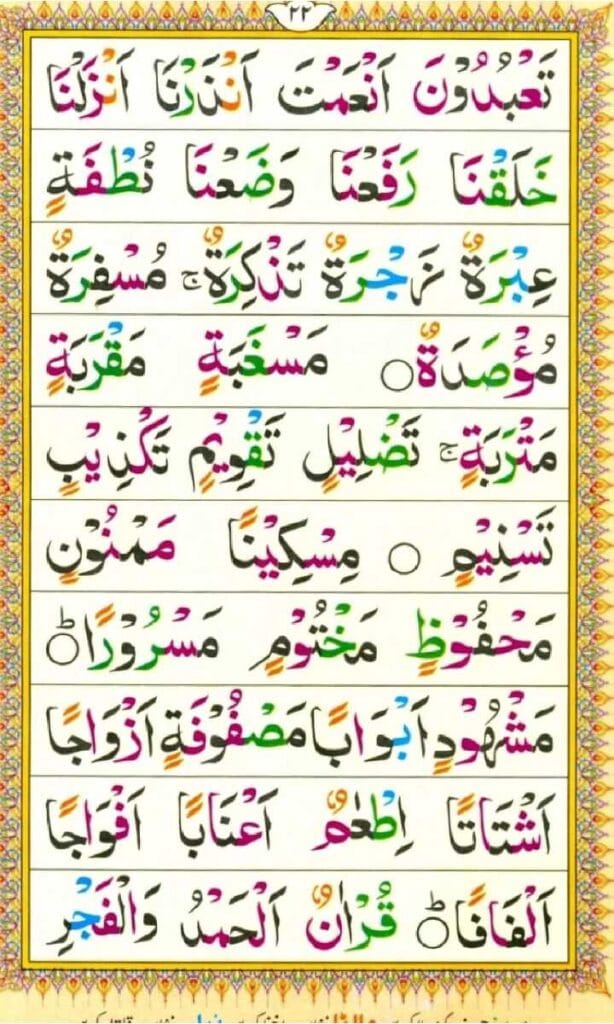 ٢٢
تَعْبُدُوْنَ اَنْعَمْتَ اَنْذَرْنَا اَنْزَلْنَا
خَلَقْنَا رَفَعْنَا وَضَعْنَا نُطْفَةٍ
عِبْرَةٌ زَجْرَةٌ تَذْكِرَةٌ ۚ مُسْفِرَةٌ
مُؤْصَدَةٌ ○ مَسْغَبَةٍ مَقْرَبَةٍ
مَتْرَبَةٍ ۚ تَضْلِيْلٍ تَقْوِيْمٍ تَكْذِيْبٍ
تَسْنِيْمٍ ○ مِسْكِيْنًا مَمْنُوْنٍ
مَحْفُوْظٍ مَخْتُوْمٍ مَسْرُوْرًا ○ؕ
مَشْهُوْدٍ اَبْوَابًا مَصْفُوْفَةٍ اَزْوَاجًا
اَشْتَاتًا اِطْعٰمٌ اَعْنَابًا اَفْوَاجًا
اَلْفَافًا ○ؕ قُرْاٰنٌ اَلْحَمْدُ وَالْفَجْرِ